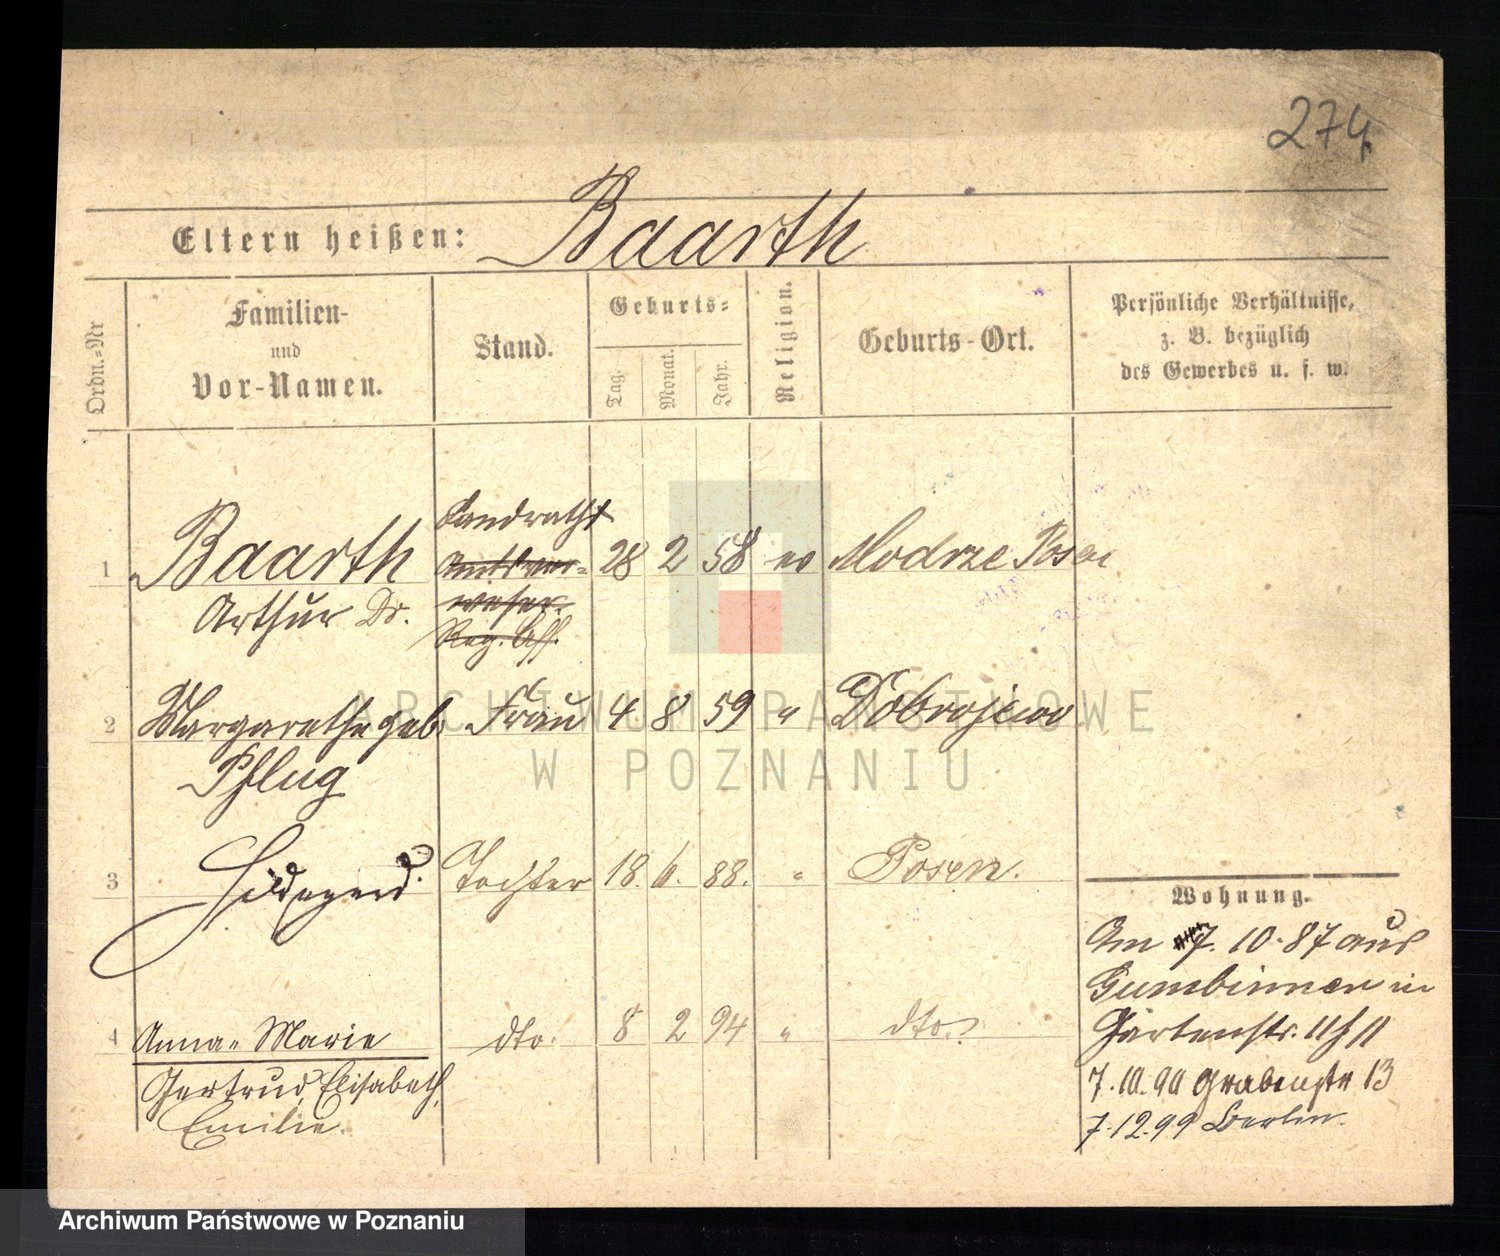 274.
Eltern heißen: Baarth
Ordn.-Nr
Familien-
und
Vor-Namen.
Stand.
Geburts-
Tag.
Monat.
Jahr.
Religion.
Geburts-Ort.
Persönliche Verhältnisse,
z. B. bezüglich
des Gewerbes u. s. w.
Landrath
1 Baarth Amtsver- 28 2 58 ev Modrze Posen
Arthur Dr. weser.
Reg. Ass.
2 Margarethe geb. Frau 4 8 59 " Dobrojewo
Pflug
3 Hildegard. Tochter 18. 6. 88. " Posen.
4 Anna-Marie dto. 8 2 94 " dto.
Gertrud, Elisabeth,
Emilie.
Wohnung.
Am 7. 10. 87 aus
Gumbinnen in
Gartenstr. 11
7.10.90 Grabenstr 13
7.12.99 Berlin.
ARCHIWUM PAŃSTWOWE
W POZNANIU
Archiwum Państwowe w Poznaniu